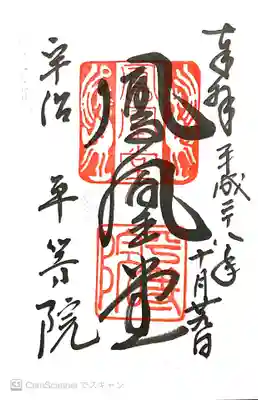 奉拝 平成二十八年
十月廿九日
鳳凰堂
宇治 平等院
CamScanner でスキャン